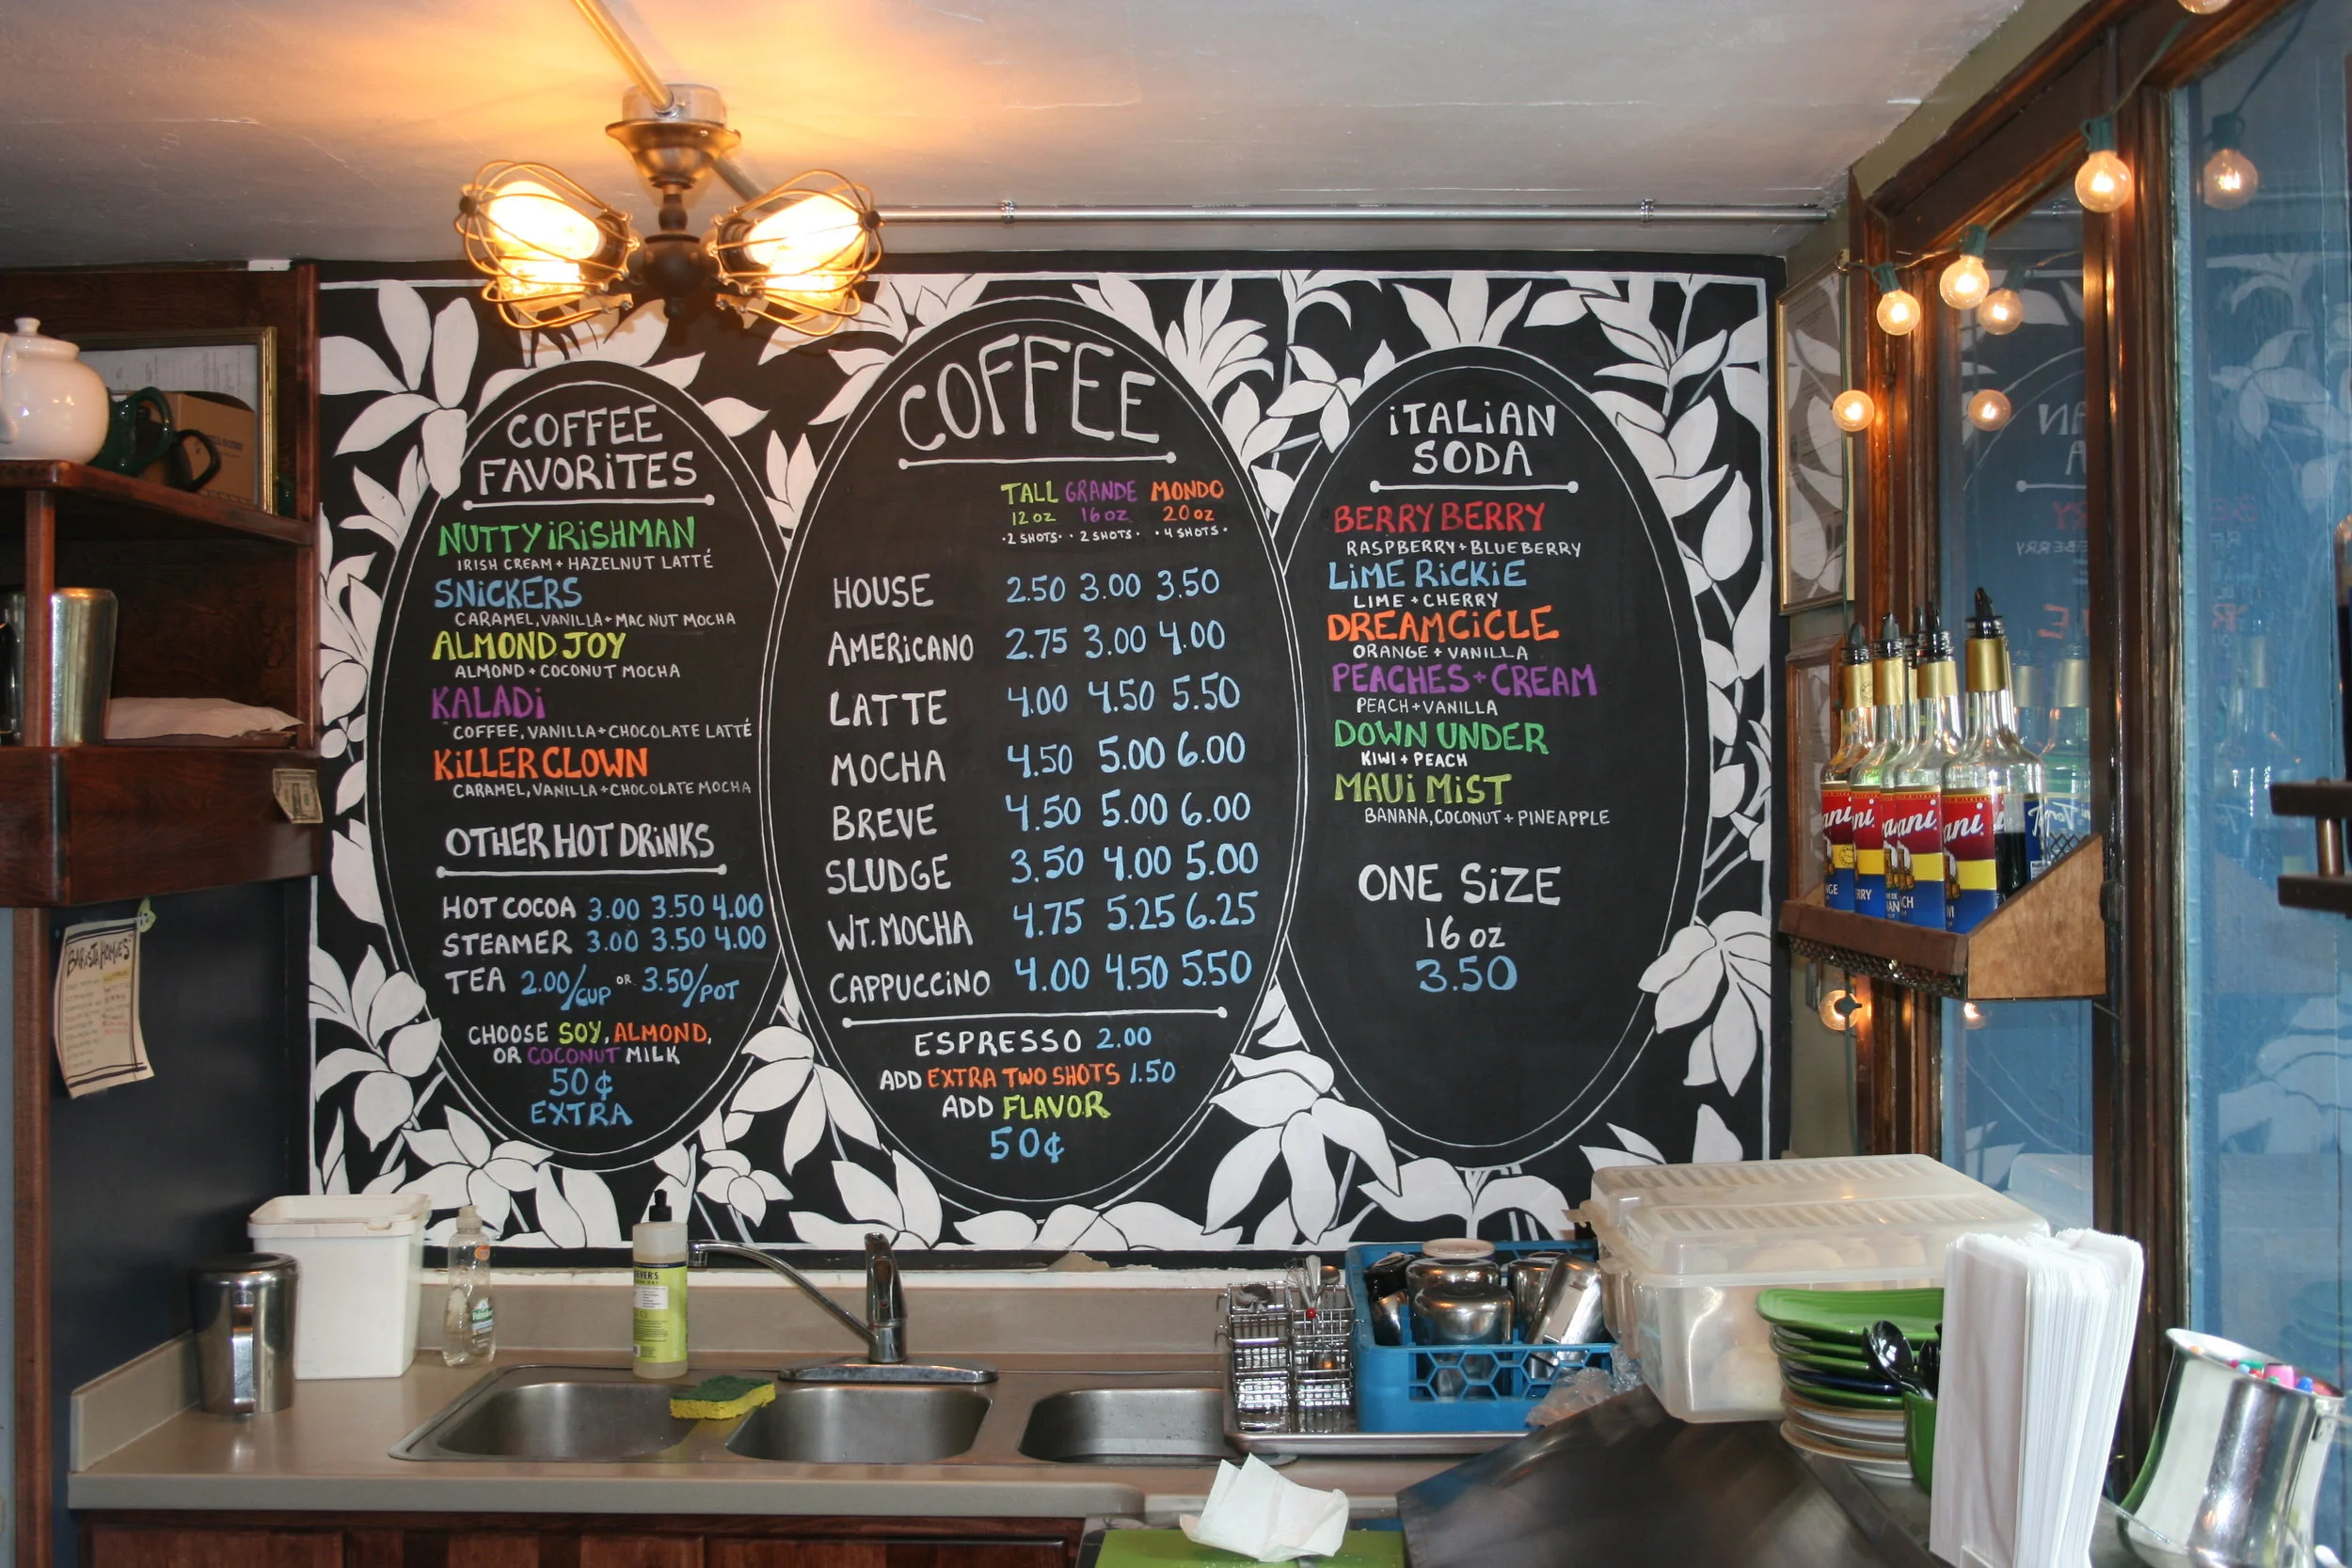 COFFEE
FAVORiTES
NUTTY iRiSHMAN
IRISH CREAM + HAZELNUT LATTÉ
SNiCKERS
CARAMEL, VANILLA + MAC NUT MOCHA
ALMOND JOY
ALMOND + COCONUT MOCHA
KALADi
COFFEE, VANILLA + CHOCOLATE LATTÉ
KiLLER CLOWN
CARAMEL, VANILLA + CHOCOLATE MOCHA
OTHER HOT DRiNKS
HOT COCOA 3.00 3.50 4.00
STEAMER 3.00 3.50 4.00
TEA 2.00/CUP OR 3.50/POT
CHOOSE SOY, ALMOND,
OR COCONUT MILK
50¢
EXTRA
COFFEE
TALL GRANDE MONDO
12 oz 16 oz 20 oz
·2 SHOTS· ·2 SHOTS· ·4 SHOTS·
HOUSE 2.50 3.00 3.50
AMERiCANO 2.75 3.00 4.00
LATTE 4.00 4.50 5.50
MOCHA 4.50 5.00 6.00
BREVE 4.50 5.00 6.00
SLUDGE 3.50 4.00 5.00
WT. MOCHA 4.75 5.25 6.25
CAPPUCCiNO 4.00 4.50 5.50
ESPRESSO 2.00
ADD EXTRA TWO SHOTS 1.50
ADD FLAVOR
50¢
iTALiAN
SODA
BERRY BERRY
RASPBERRY + BLUEBERRY
LiME RiCKiE
LIME + CHERRY
DREAMCiCLE
ORANGE + VANILLA
PEACHES + CREAM
PEACH + VANILLA
DOWN UNDER
KIWI + PEACH
MAUi MiST
BANANA, COCONUT + PINEAPPLE
ONE SiZE
16 oz
3.50
BARISTA HOMIES